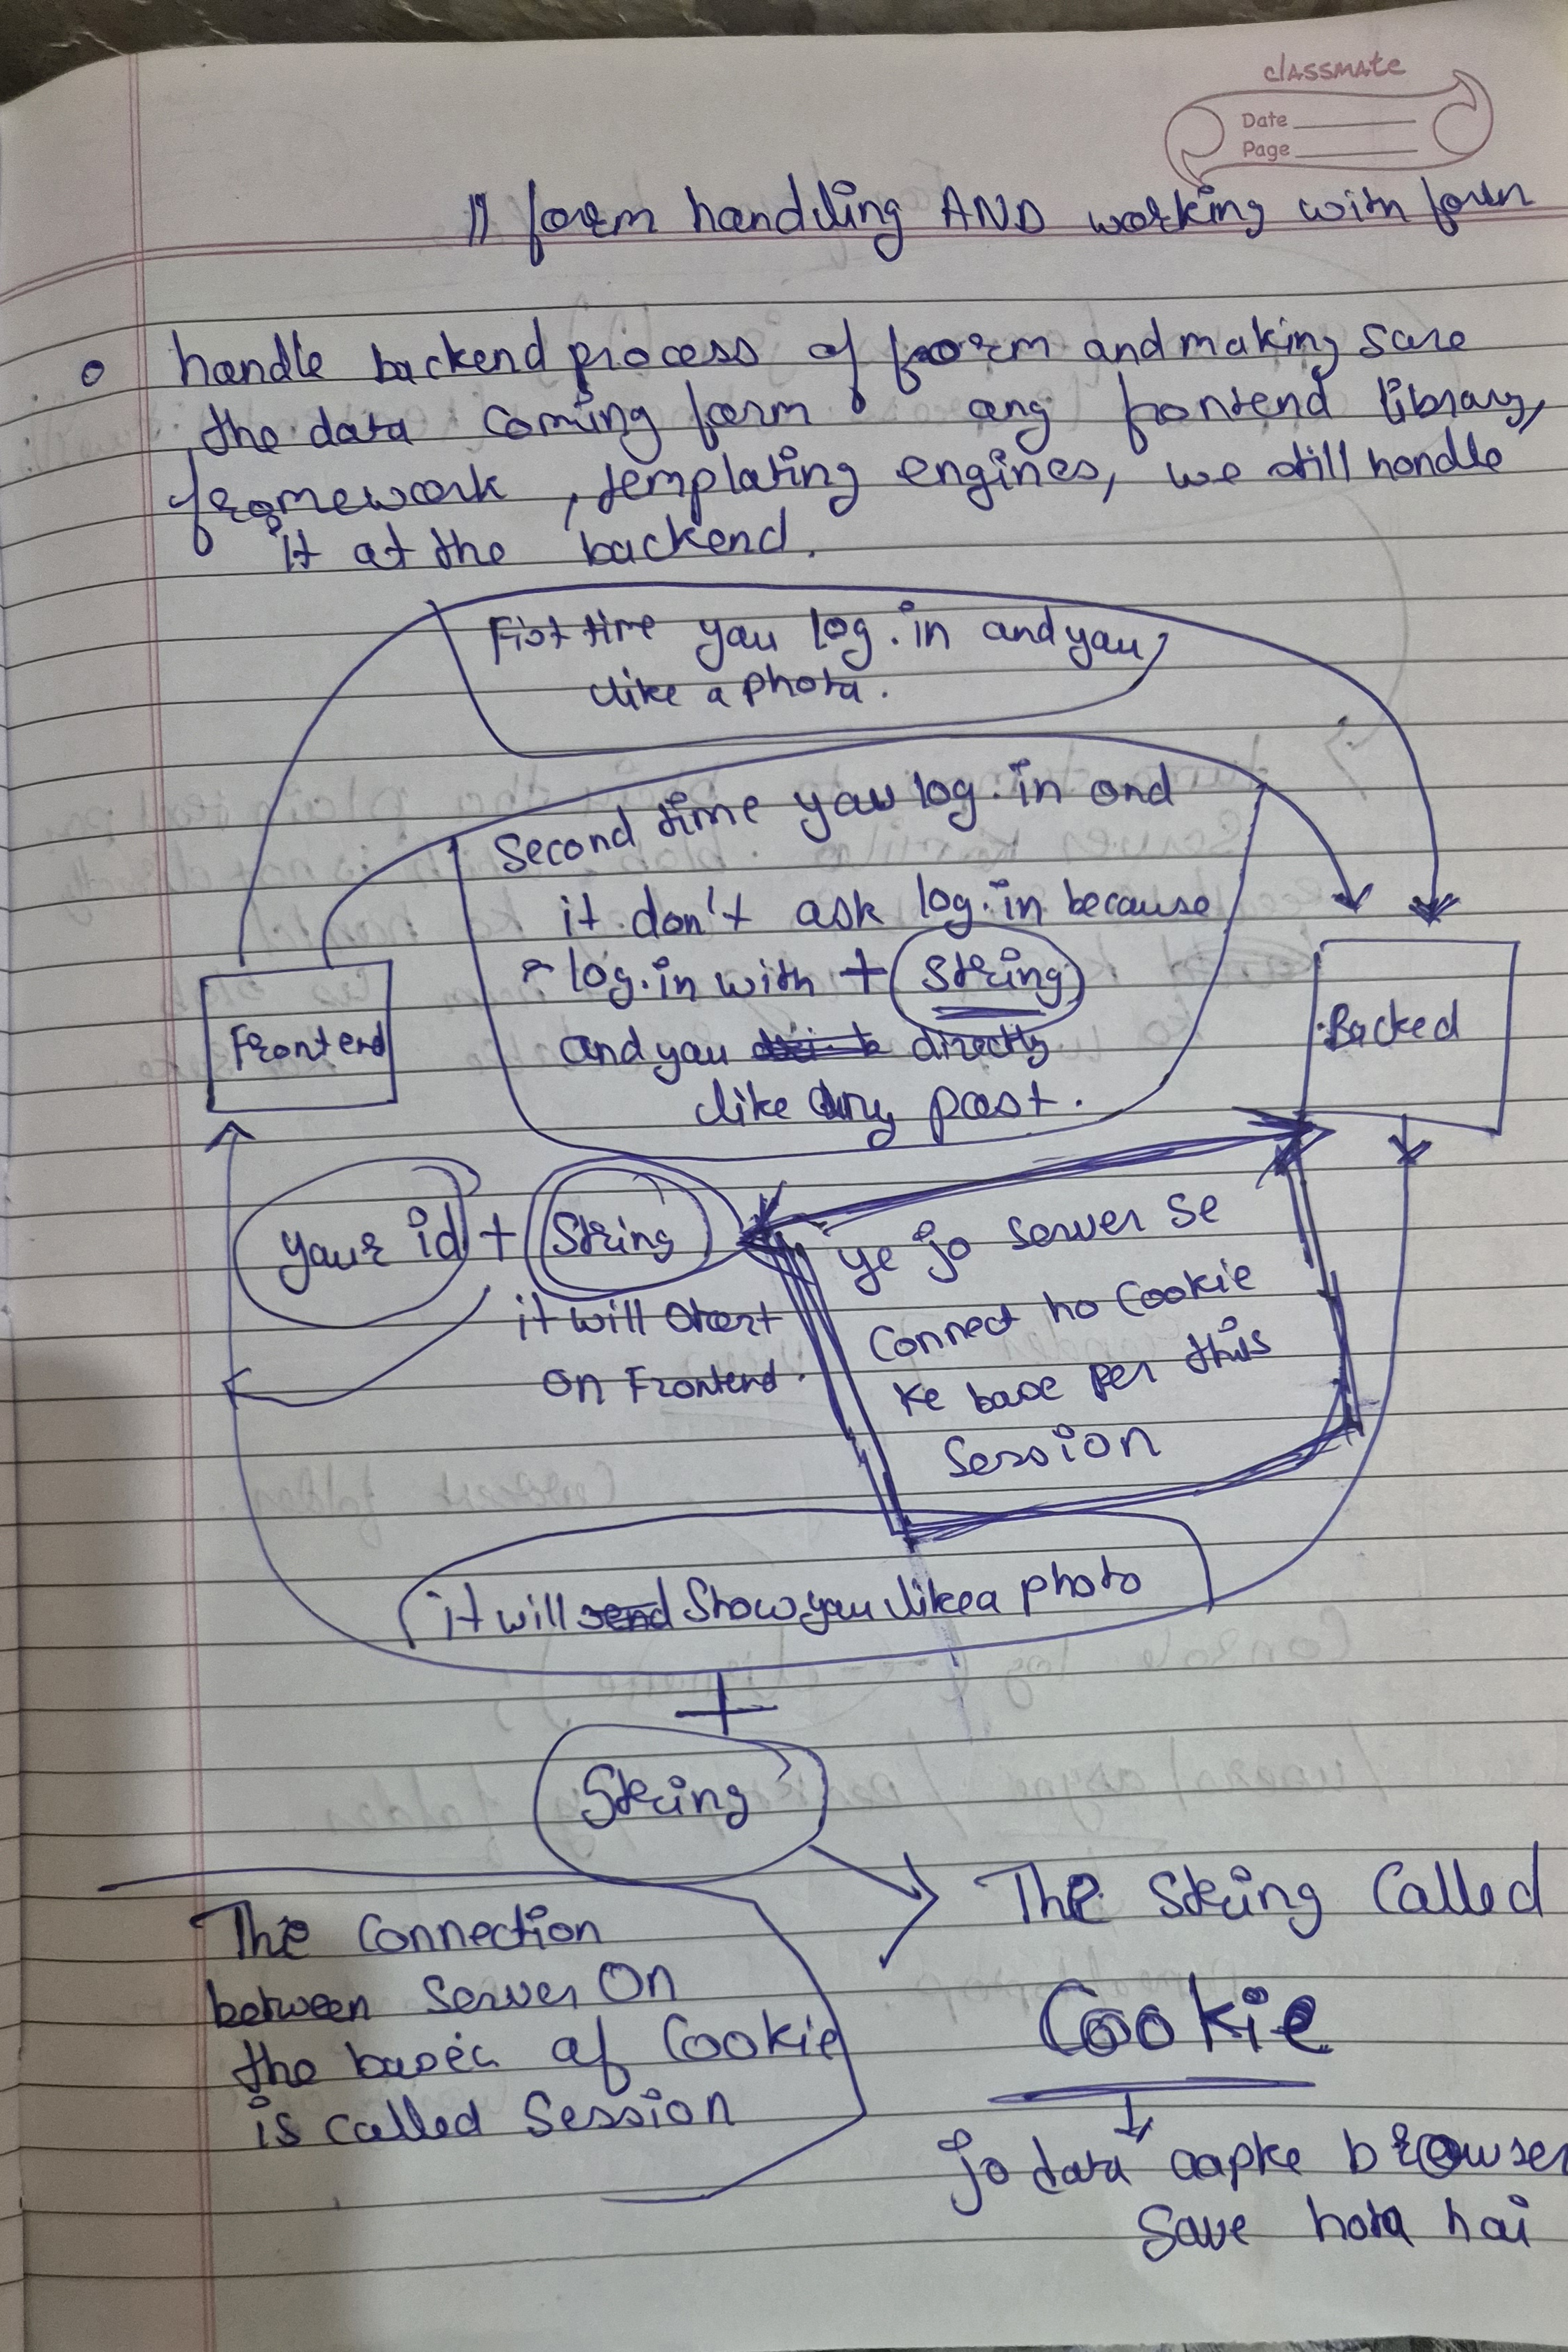 classmate
Date
Page
// form handling AND working with form
handle backend process of form and making sure
the data coming form any frontend library,
framework, templating engines, we still handle
it at the backend.
First time you log.in and you
like a photo.
Second time you log.in and
it don't ask log.in because
log.in with + String
and you directly
like any post.
Frontend
Backed
your id + String
it will start
on Frontend.
ye jo server se
Connect ho Cookie
ke base per this
Session
it will send Show you like a photo
+
String
The String Called
Cookie
jo data aapke browser
Save hota hai
The Connection
between server On
the basis of Cookie
is called Session